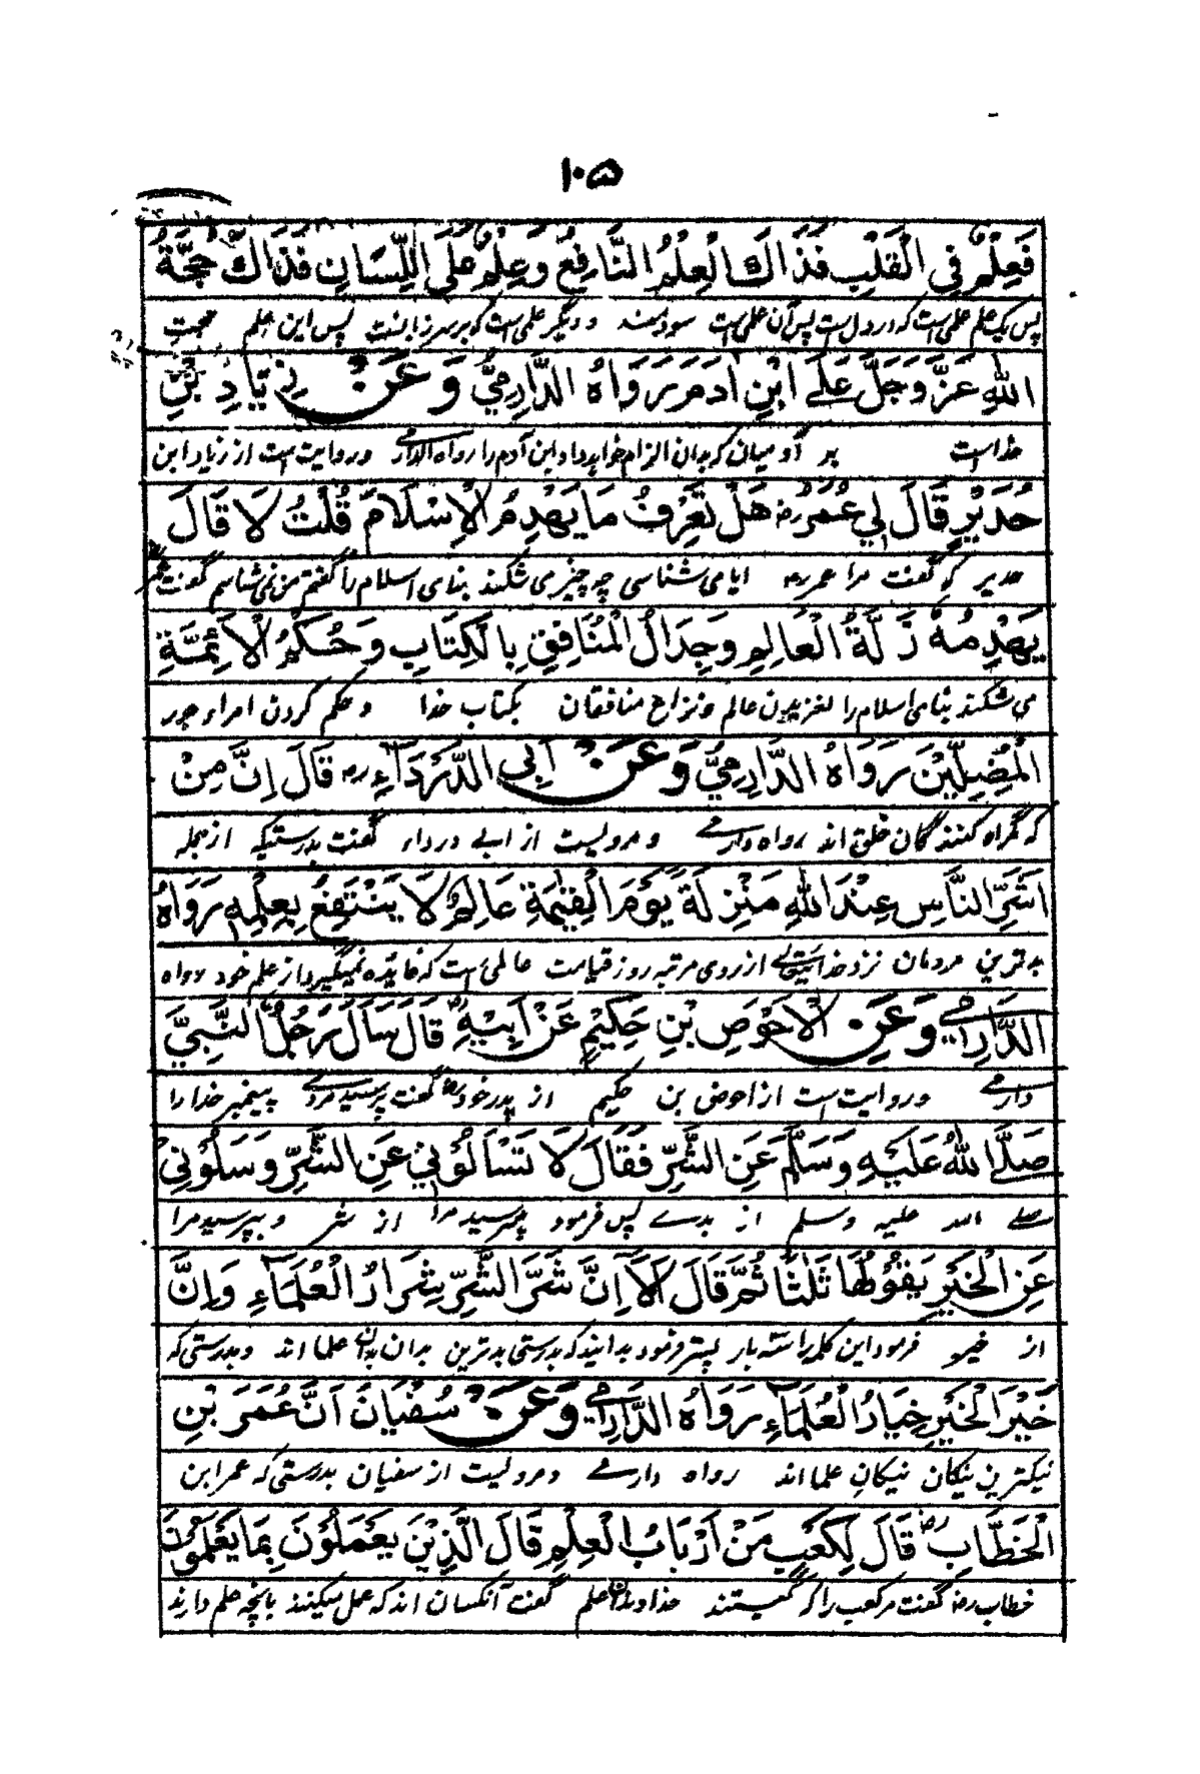 ۱۰۵
فَعِلْمٌ فِي الْقَلْبِ فَذَاكَ الْعِلْمُ النَّافِعُ وَعِلْمٌ عَلَى اللِّسَانِ فَذَاكَ حُجَّةُ
پس یک علم علمی است که در دل است پس آن علمی است سودمند و دیگر علمی است که بر سر زبانست پس این علم حجت
اللهِ عَزَّ وَجَلَّ عَلَى ابْنِ اٰدَمَ رَوَاهُ الدَّارِمِيُّ وَعَنْ زِيَادِ بْنِ
خداست بر آدمیان که بدان الزام خواهد داد ابن آدم را رواه الدارمی و روایت است از زیاد ابن
حُدَيْرٍ قَالَ لِي عُمَرُ رض هَلْ تَعْرِفُ مَا يَهْدِمُ الْاِسْلَامَ قُلْتُ لَا قَالَ
حدیر که گفت مرا عمر رض ایا می شناسی چه چیز می شکند بنای اسلام را گفتم من نمی شناسم گفت عمر
يَهْدِمُهُ زَلَّةُ الْعَالِمِ وَجِدَالُ الْمُنَافِقِ بِالْكِتَابِ وَحُكْمُ الْاَئِمَّةِ
می شکند بنای اسلام را لغزیدن عالم و نزاع منافقان بکتاب خدا و حکم کردن امراء جور
الْمُضِلِّيْنَ رَوَاهُ الدَّارِمِيُّ وَعَنْ اَبِي الدَّرْدَاءِ رض قَالَ اِنَّ مِنْ
که گمراه کنندگان خلق اند رواه دارمی و مرویست از ابی درداء گفت بدرستیکه از جمله
اَشَرِّ النَّاسِ عِنْدَ اللهِ مَنْزِلَةً يَوْمَ الْقِيٰمَةِ عَالِمٌ لَا يَنْتَفِعُ بِعِلْمِهِ رَوَاهُ
بدترین مردمان نزد خدایتعالی از روی مرتبه روز قیامت عالمی است که فائده نمیگیرد از علم خود رواه
الدَّارِمِيُّ وَعَنِ الْاَحْوَصِ بْنِ حَكِيْمٍ عَنْ اَبِيْهِ قَالَ سَاَلَ رَجُلٌ النَّبِيَّ
دارمی و روایت است از احوض بن حکیم از پدر خود رض گفت پرسید مردے پیغمبر خدا را
صَلَّى اللهُ عَلَيْهِ وَسَلَّمَ عَنِ الشَّرِّ فَقَالَ لَا تَسْاَلُوْنِي عَنِ الشَّرِّ وَسَلُوْنِيْ
صلے الله علیه وسلم از بدے پس فرمود مپرسید مرا از شر و بپرسید مرا
عَنِ الْخَيْرِ يَقُوْلُهَا ثَلٰثًا ثُمَّ قَالَ اَلَا اِنَّ شَرَّ الشَّرِّ شِرَارُ الْعُلَمَاءِ وَاِنَّ
از خیر فرمود این کلمه را سته بار پستر فرمود بدانید که بدرستی بدترین بدان بدان علما اند و بدرستی که
خَيْرَ الْخَيْرِ خِيَارُ الْعُلَمَاءِ رَوَاهُ الدَّارِمِيُّ وَعَنْ سُفْيَانَ اَنَّ عُمَرَ بْنَ
نیکترین نیکان نیکان علما اند رواه دارمے و مرویست از سفیان بدرستی که عمر ابن
الْخَطَّابِ رض قَالَ لِكَعْبٍ مَنْ اَرْبَابُ الْعِلْمِ قَالَ الَّذِيْنَ يَعْمَلُوْنَ بِمَا يَعْلَمُوْنَ
خطاب رض گفت مر کعب را که کیستند خداوندان علم گفت آنکسان اند که عمل میکنند بانچه علم دارند